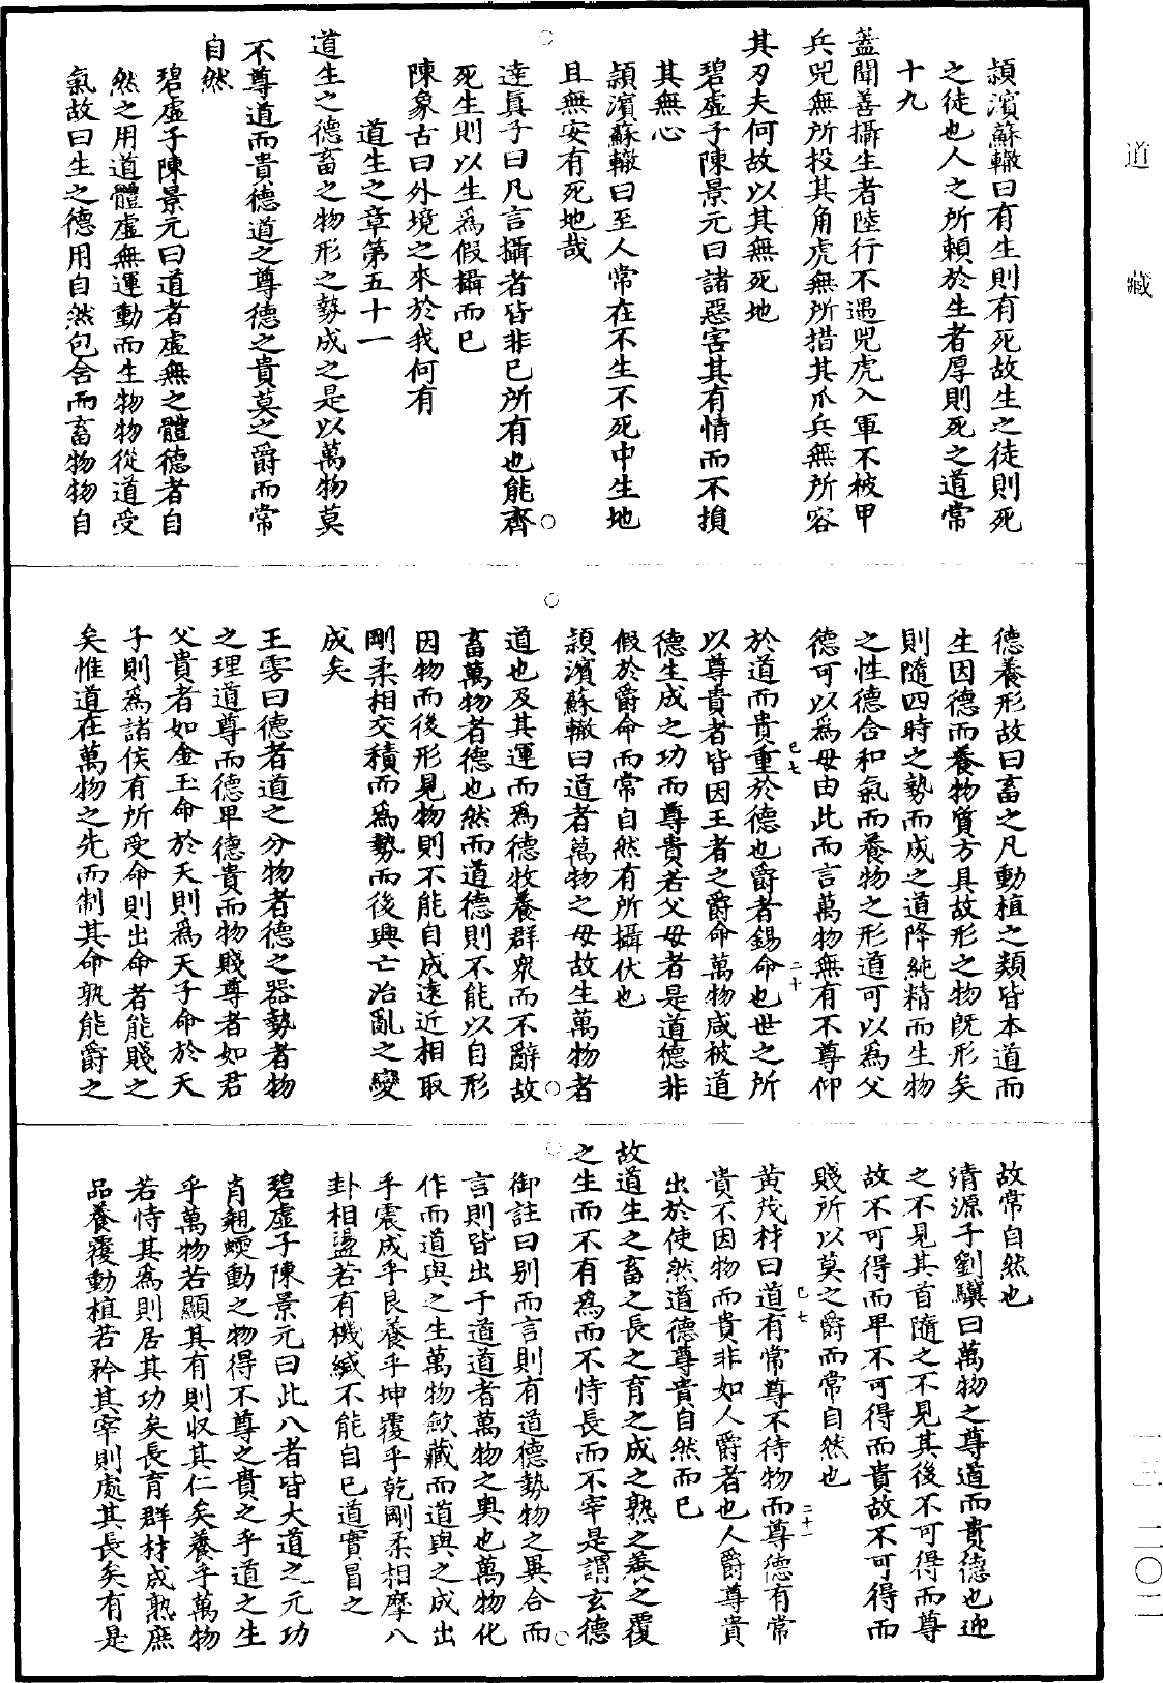 道藏
一三—二〇二
頴濱蘇轍曰有生則有死故生之徒則死
之徒也人之所賴於生者厚則死之道常
十九
蓋聞善攝生者陸行不遇兕虎入軍不被甲
兵兕無所投其角虎無所措其爪兵無所容
其刃夫何故以其無死地
碧虛子陳景元曰諸惡害其有情而不損
其無心
頴濱蘇轍曰至人常在不生不死中生地
且無安有死地哉
達眞子曰凡言攝者皆非已所有也能齊
死生則以生爲假攝而已
陳象古曰外境之來於我何有
道生之章第五十一
道生之德畜之物形之勢成之是以萬物莫
不尊道而貴德道之尊德之貴莫之爵而常
自然
碧虛子陳景元曰道者虛無之體德者自
然之用道體虛無運動而生物物從道受
氣故曰生之德用自然包含而畜物物自
德養形故曰畜之凡動植之類皆本道而
生因德而養物質方具故形之物旣形矣
則隨四時之勢而成之道降純精而生物
之性德含和氣而養物之形道可以爲父
德可以爲母由此而言萬物無有不尊仰
於道而貴重於德也爵者錫命也世之所
以尊貴者皆因王者之爵命萬物咸被道
德生成之功而尊貴若父母者是道德非
假於爵命而常自然有所攝伏也
頴濱蘇轍曰道者萬物之母故生萬物者
道也及其運而爲德牧養群衆而不辭故
畜萬物者德也然而道德則不能以自形
因物而後形見物則不能自成遠近相取
剛柔相交積而爲勢而後興亡治亂之變
成矣
王雱曰德者道之分物者德之器勢者物
之理道尊而德卑德貴而物賤尊者如君
父貴者如金玉命於天則爲天子命於天
子則爲諸侯有所受命則出命者能賤之
矣惟道在萬物之先而制其命孰能爵之
已七
二十
故常自然也
清源子劉驥曰萬物之尊道而貴德也迎
之不見其首隨之不見其後不可得而尊
故不可得而卑不可得而貴故不可得而
賤所以莫之爵而常自然也
黃茂材曰道有常尊不待物而尊德有常
貴不因物而貴非如人爵者也人爵尊貴
出於使然道德尊貴自然而已
故道生之畜之長之育之成之熟之養之覆
之生而不有爲而不恃長而不宰是謂玄德
御註曰别而言則有道德勢物之異合而
言則皆出于道道者萬物之奧也萬物化
作而道與之生萬物歛藏而道與之成出
乎震成乎艮養乎坤覆乎乾剛柔相摩八
卦相盪若有機緘不能自已道實冒之
碧虛子陳景元曰此八者皆大道之元功
肖翹蝡動之物得不尊之貴之乎道之生
乎萬物若顯其有則収其仁矣養乎萬物
若恃其爲則居其功矣長育群材成熟庶
品養覆動植若矜其宰則處其長矣有是
已七
二十一